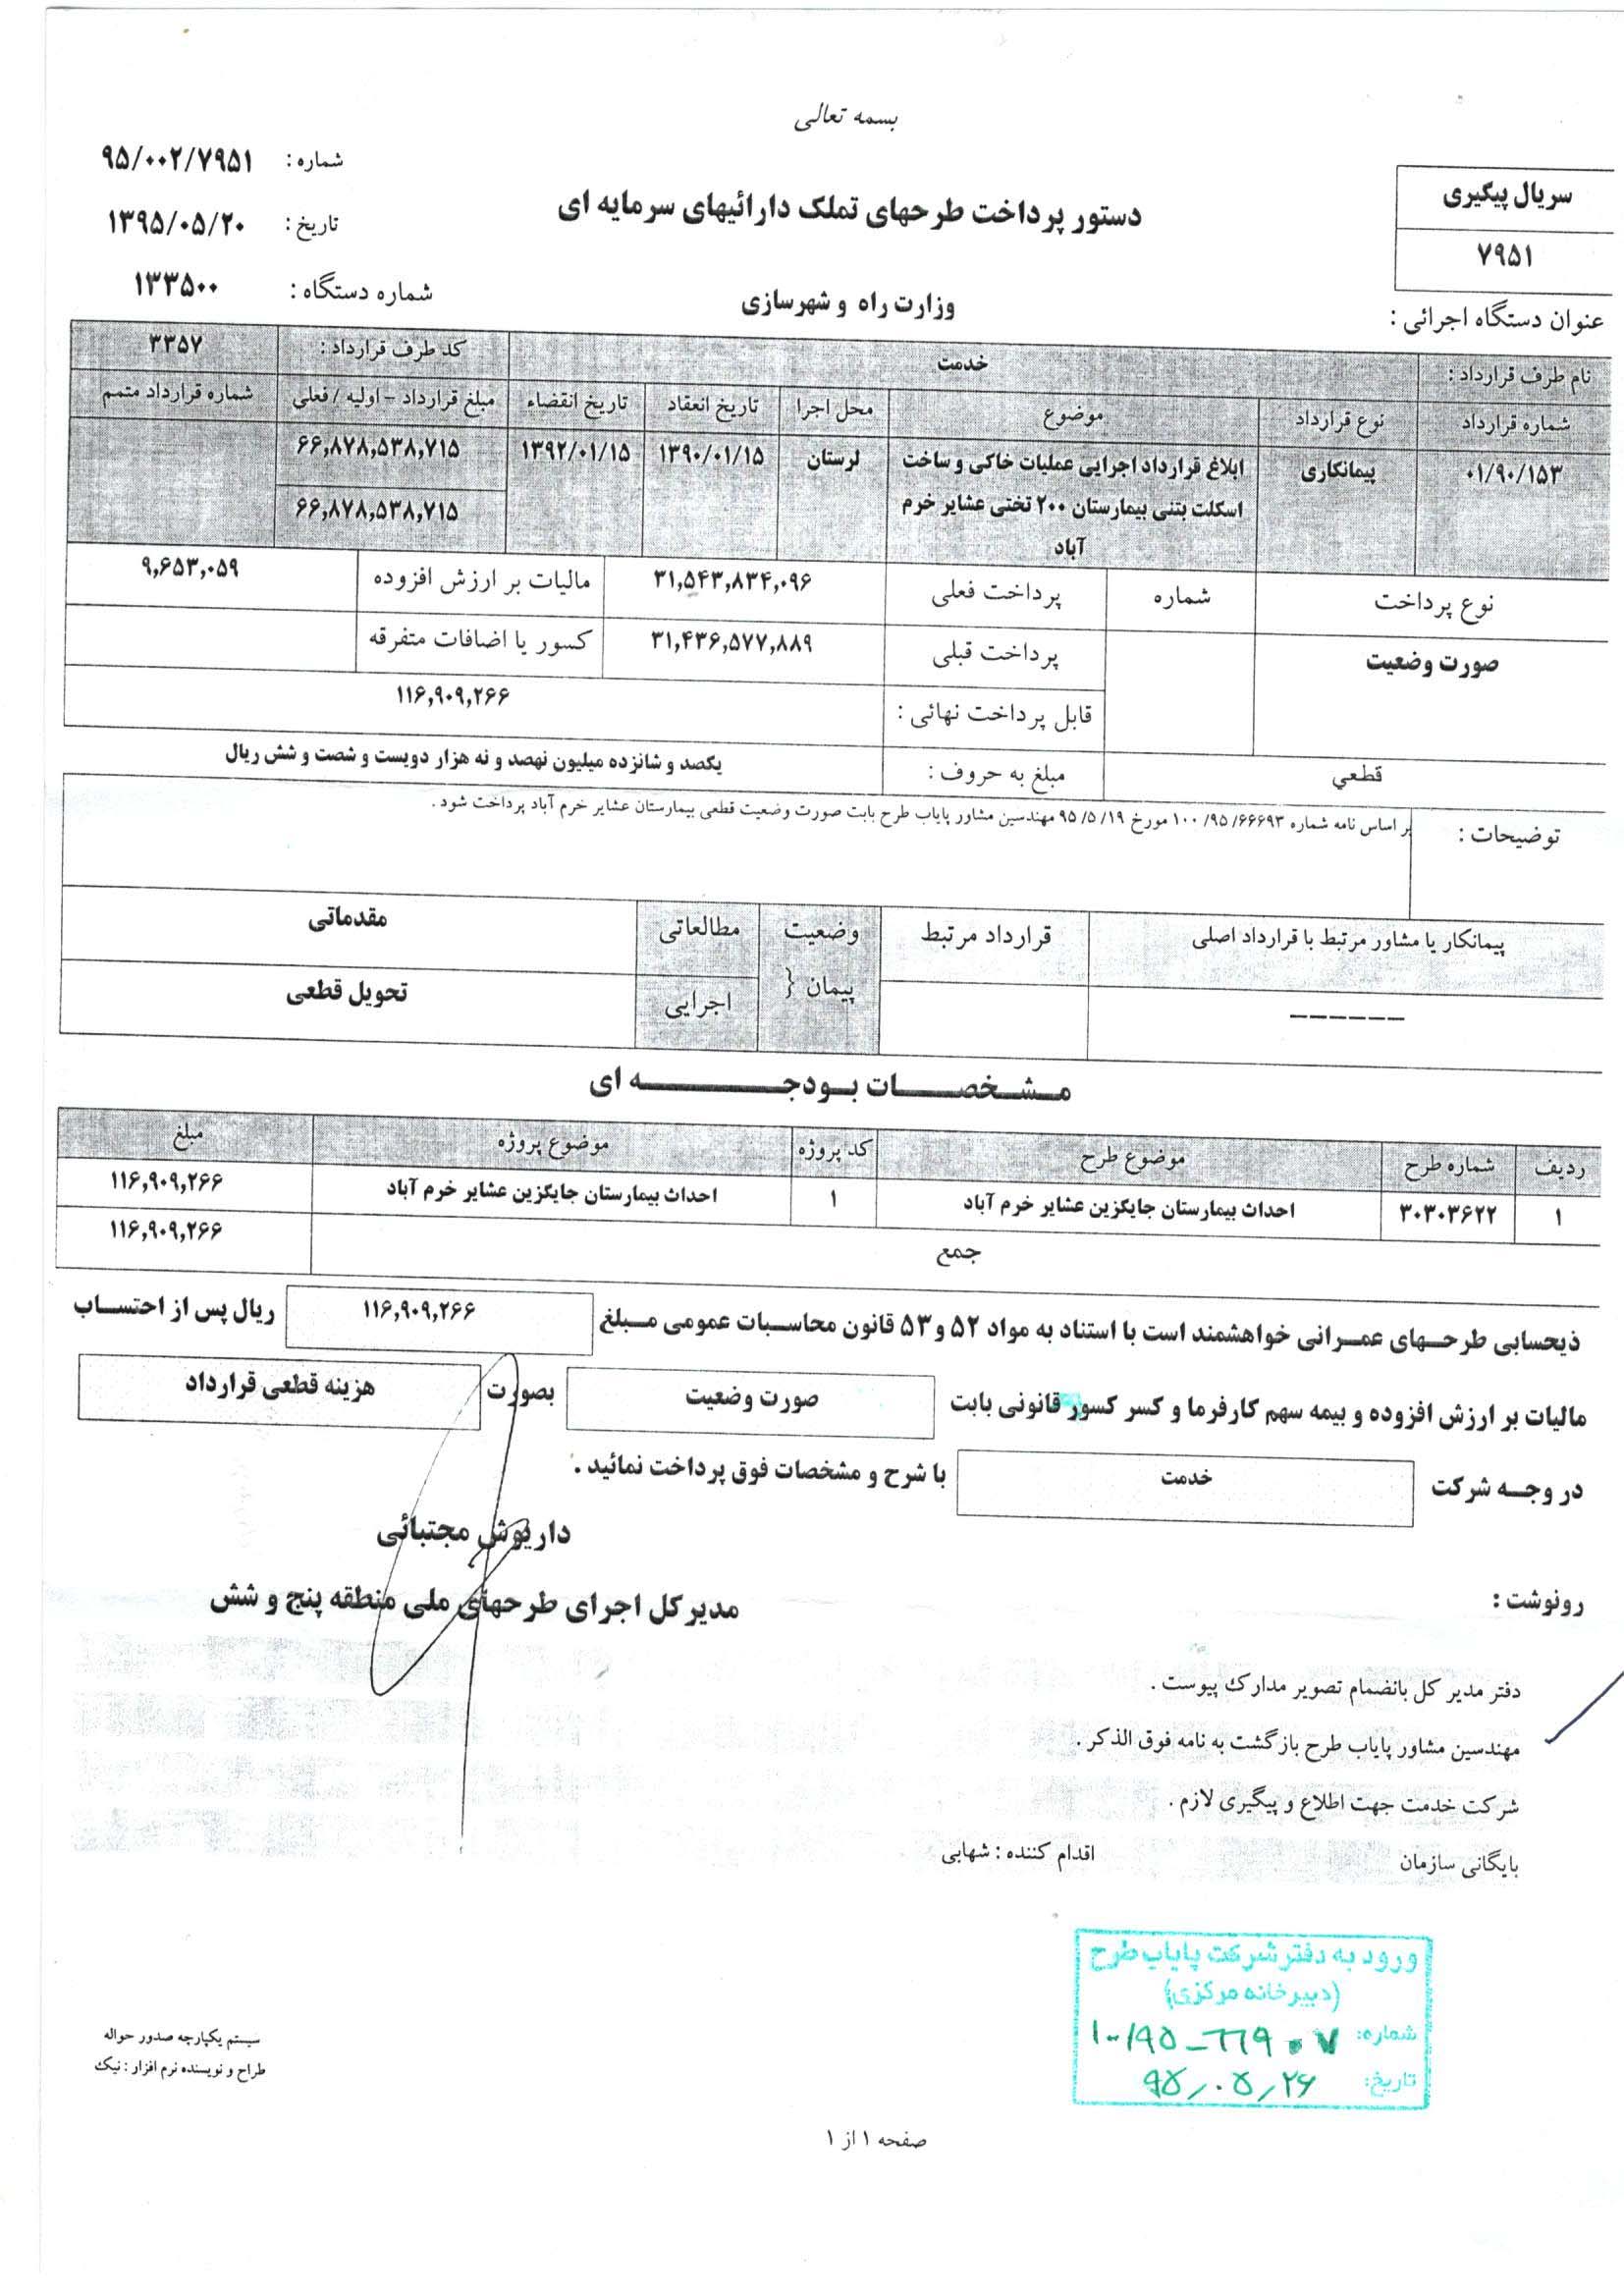 بسمه تعالی
شماره : ۹۵/۰۰۲/۷۹۵۱
تاریخ : ۱۳۹۵/۰۵/۲۰
شماره دستگاه : ۱۳۳۵۰۰
دستور پرداخت طرحهای تملک دارائیهای سرمایه ای
سریال پیگیری
۷۹۵۱
عنوان دستگاه اجرائی : وزارت راه و شهرسازی
نام طرف قرارداد : خدمت کد طرف قرارداد : ۳۳۵۷
شماره قرارداد نوع قرارداد موضوع محل اجرا تاریخ انعقاد تاریخ انقضاء مبلغ قرارداد - اولیه / فعلی شماره قرارداد متمم
۰۱/۹۰/۱۵۳ پیمانکاری ابلاغ قرارداد اجرایی عملیات خاکی و ساخت لرستان ۱۳۹۰/۰۱/۱۵ ۱۳۹۲/۰۱/۱۵ ۶۶,۸۷۸,۵۳۸,۷۱۵
اسکلت بتنی بیمارستان ۲۰۰ تختی عشایر خرم ۶۶,۸۷۸,۵۳۸,۷۱۵
آباد
نوع پرداخت شماره پرداخت فعلی ۳۱,۵۴۳,۸۳۴,۰۹۶ مالیات بر ارزش افزوده ۹,۶۵۳,۰۵۹
صورت وضعیت پرداخت قبلی ۳۱,۴۳۶,۵۷۷,۸۸۹ کسور یا اضافات متفرقه
قابل پرداخت نهائی : ۱۱۶,۹۰۹,۲۶۶
قطعي مبلغ به حروف : یکصد و شانزده میلیون نهصد و نه هزار دویست و شصت و شش ریال
توضیحات : بر اساس نامه شماره ۶۶۶۹۳ /۹۵/ ۱۰۰ مورخ ۱۹ /۵ /۹۵ مهندسین مشاور پایاب طرح بابت صورت وضعیت قطعی بیمارستان عشایر خرم آباد پرداخت شود .
پیمانکار یا مشاور مرتبط با قرارداد اصلی قرارداد مرتبط وضعیت مطالعاتی مقدماتی
------ پیمان { اجرایی تحویل قطعی
مشخصات بودجه ای
ردیف شماره طرح موضوع طرح کد پروژه موضوع پروژه مبلغ
۱ ۳۰۳۰۳۶۲۲ احداث بیمارستان جایگزین عشایر خرم آباد ۱ احداث بیمارستان جایگزین عشایر خرم آباد ۱۱۶,۹۰۹,۲۶۶
جمع ۱۱۶,۹۰۹,۲۶۶
ذیحسابی طرحهای عمرانی خواهشمند است با استناد به مواد ۵۲ و ۵۳ قانون محاسبات عمومی مبلغ ۱۱۶,۹۰۹,۲۶۶ ریال پس از احتساب
مالیات بر ارزش افزوده و بیمه سهم کارفرما و کسر کسور قانونی بابت صورت وضعیت بصورت هزینه قطعی قرارداد
در وجه شرکت خدمت با شرح و مشخصات فوق پرداخت نمائید .
داریوش مجتبائی
مدیرکل اجرای طرحهای ملی منطقه پنج و شش
رونوشت :
دفتر مدیر کل بانضمام تصویر مدارک پیوست .
مهندسین مشاور پایاب طرح بازگشت به نامه فوق الذکر .
شرکت خدمت جهت اطلاع و پیگیری لازم .
بایگانی سازمان اقدام کننده : شهابی
ورود به دفتر شرکت پایاب طرح
(دبیرخانه مرکزی)
شماره: ۱۰۰/۹۵-۶۶۹۰۷
تاریخ: ۹۵/۰۵/۲۶
سیستم یکپارچه صدور حواله
طراح و نویسنده نرم افزار : نیک
صفحه ۱ از ۱